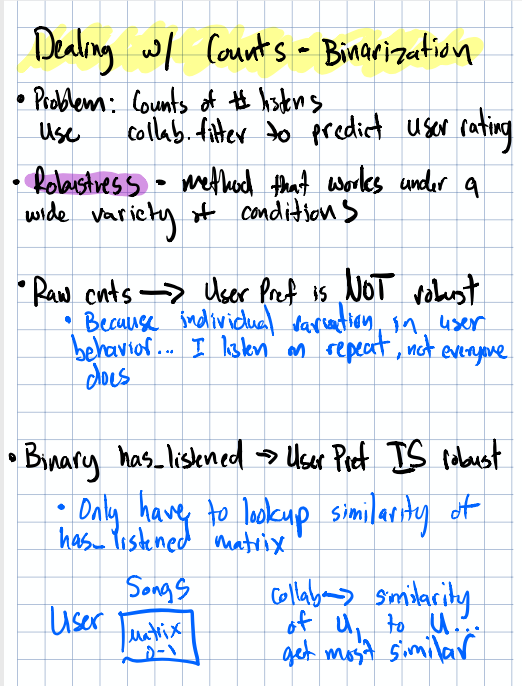 Dealing w/ Counts - Binarization
• Problem: Counts of # listens
Use collab. filter to predict user rating
• Robustness - method that works under a
wide variety of conditions
• Raw cnts → User Pref is NOT robust
• Because individual variation in user
behavior... I listen on repeat, not everyone
does
• Binary has_listened → User Pref IS robust
• Only have to lookup similarity of
has_listened matrix
Songs
User
matrix
0-1
collab → similarity
of U, to U...
get most similar